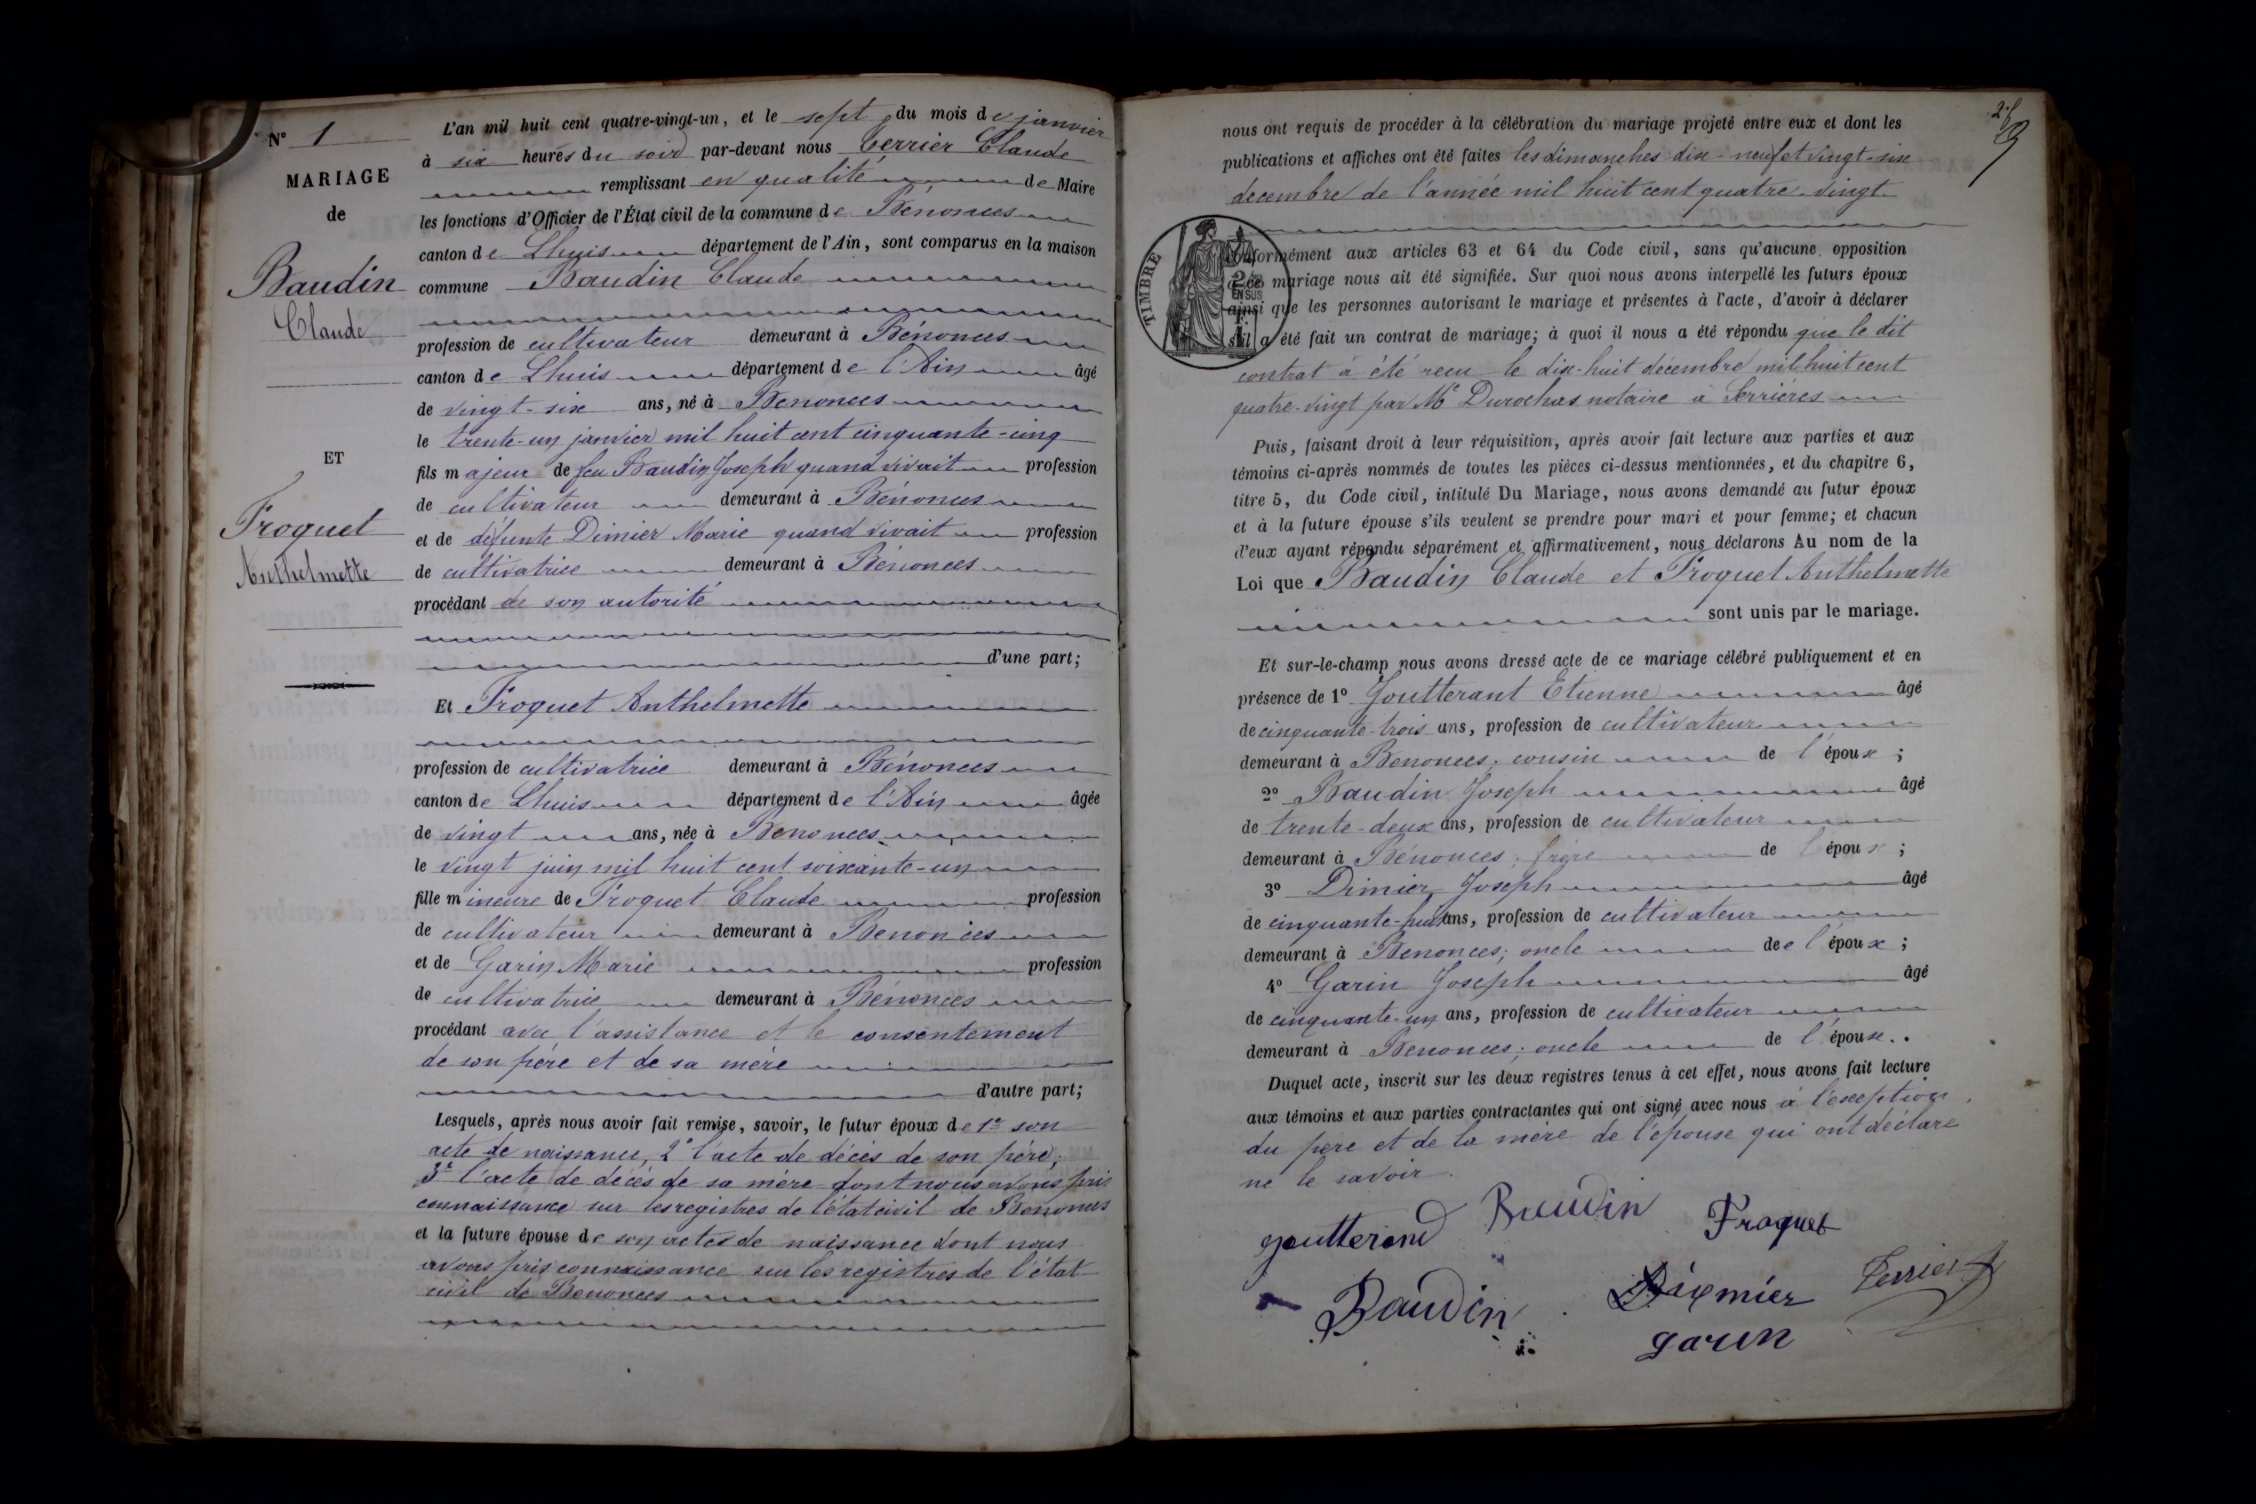 N° 1
MARIAGE
de
Baudin
Claude
ET
Froquet
Anthelmette
L'an mil huit cent quatre-vingt-un, et le sept du mois de janvier
à six heures du soir par-devant nous Terrier Claude
remplissant en qualité de Maire
les fonctions d'Officier de l'État civil de la commune de Bénonces
canton de Lhuis département de l'Ain, sont comparus en la maison
commune Baudin Claude
profession de cultivateur demeurant à Bénonces
canton de Lhuis département de l'Ain âgé
de vingt-six ans, né à Benonces
le trente-un janvier mil huit cent cinquante-cinq
fils majeur de feu Baudin Joseph quand vivait profession
de cultivateur demeurant à Bénonces
et de défunte Dimier Marie quand vivait profession
de cultivatrice demeurant à Bénonces
procédant de son autorité
d'une part;
Et Froquet Anthelmette
profession de cultivatrice demeurant à Bénonces
canton de Lhuis département de l'Ain âgée
de vingt ans, née à Benonces
le vingt juin mil huit cent soixante-un
fille mineure de Froquet Claude profession
de cultivateur demeurant à Benonces
et de Garin Marie profession
de cultivatrice demeurant à Bénonces
procédant avec l'assistance et le consentement
de son père et de sa mère
d'autre part;
Lesquels, après nous avoir fait remise, savoir, le futur époux de 1° son
acte de naissance, 2° l'acte de décès de son père,
3° l'acte de décès de sa mère dont nous avons pris
connaissance sur les registres de l'état civil de Benonces
et la future épouse de son acte de naissance dont nous
avons pris connaissance sur les registres de l'état
civil de Benonces
nous ont requis de procéder à la célébration du mariage projeté entre eux et dont les
publications et affiches ont été faites les dimanches dix-neuf et vingt-six
decembre de l'année mil huit cent quatre-vingt
TIMBRE
2/10
EN SUS
conformément aux articles 63 et 64 du Code civil, sans qu'aucune opposition
à ce mariage nous ait été signifiée. Sur quoi nous avons interpellé les futurs époux
ainsi que les personnes autorisant le mariage et présentes à l'acte, d'avoir à déclarer
s'il a été fait un contrat de mariage; à quoi il nous a été répondu que le dit
contrat à été recu le dix-huit décembre mil huit cent
quatre-vingt par Me Durochas notaire à Serrières
Puis, faisant droit à leur réquisition, après avoir fait lecture aux parties et aux
témoins ci-après nommés de toutes les pièces ci-dessus mentionnées, et du chapitre 6,
titre 5, du Code civil, intitulé Du Mariage, nous avons demandé au futur époux
et à la future épouse s'ils veulent se prendre pour mari et pour femme; et chacun
d'eux ayant répondu séparément et affirmativement, nous déclarons Au nom de la
Loi que Baudin Claude et Froquet Anthelmette
sont unis par le mariage.
Et sur-le-champ nous avons dressé acte de ce mariage célébré publiquement et en
présence de 1° Goutterant Etienne âgé
de cinquante-trois ans, profession de cultivateur
demeurant à Benonces; cousin de l'époux;
2° Baudin Joseph âgé
de trente-deux ans, profession de cultivateur
demeurant à Bénonces; frère de l'époux;
3° Dimier Joseph âgé
de cinquante-huit ans, profession de cultivateur
demeurant à Benonces; oncle dee l'époux;
4° Garin Joseph âgé
de cinquante-un ans, profession de cultivateur
demeurant à Benonces; oncle de l'épouse.
Duquel acte, inscrit sur les deux registres tenus à cet effet, nous avons fait lecture
aux témoins et aux parties contractantes qui ont signé avec nous à l'exception
du père et de la mère de l'épouse qui ont déclaré
ne le savoir.
goutterend Baudin Froquet
Baudin Terrier
garin